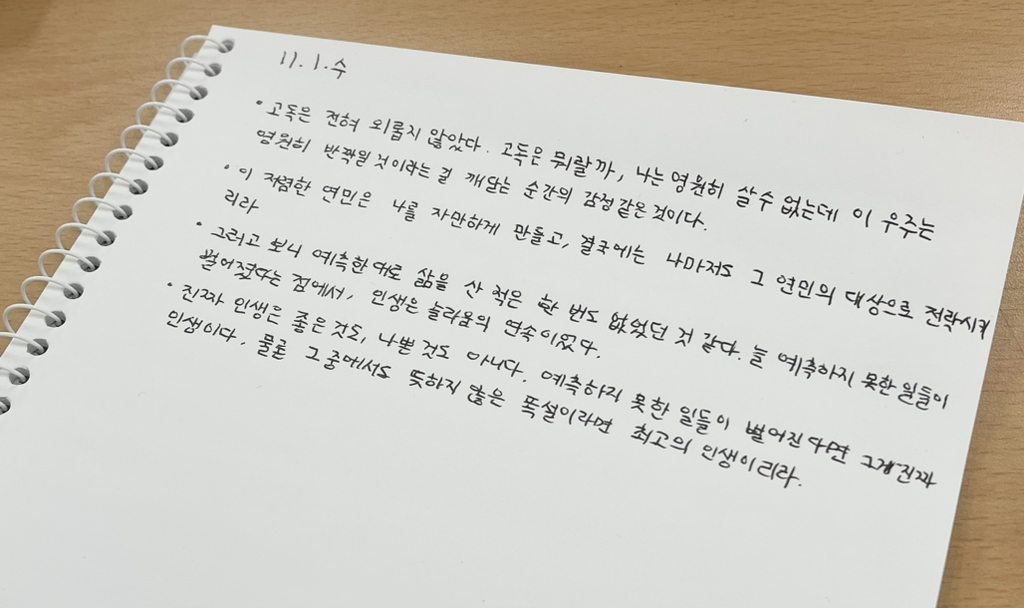 11. 1. 수
· 고독은 전혀 외롭지 않았다. 고독은 뭐랄까, 나는 영원히 살 수 없는데 이 우주는
영원히 반짝일 것이라는 걸 깨닫는 순간의 감정 같은 것이다.
· 이 저렴한 연민은 나를 자만하게 만들고, 결국에는 나마저도 그 연민의 대상으로 전락시키
리라
· 그러고 보니 예측한 대로 삶을 산 적은 한 번도 없었던 것 같다. 늘 예측하지 못한 일들이
벌어졌다는 점에서, 인생은 놀라움의 연속이었다.
· 진짜 인생은 좋은 것도, 나쁜 것도 아니다. 예측하지 못한 일들이 벌어진다면 그게 진짜
인생이다. 물론 그중에서도 뜻하지 않은 폭설이라면 최고의 인생이리라.